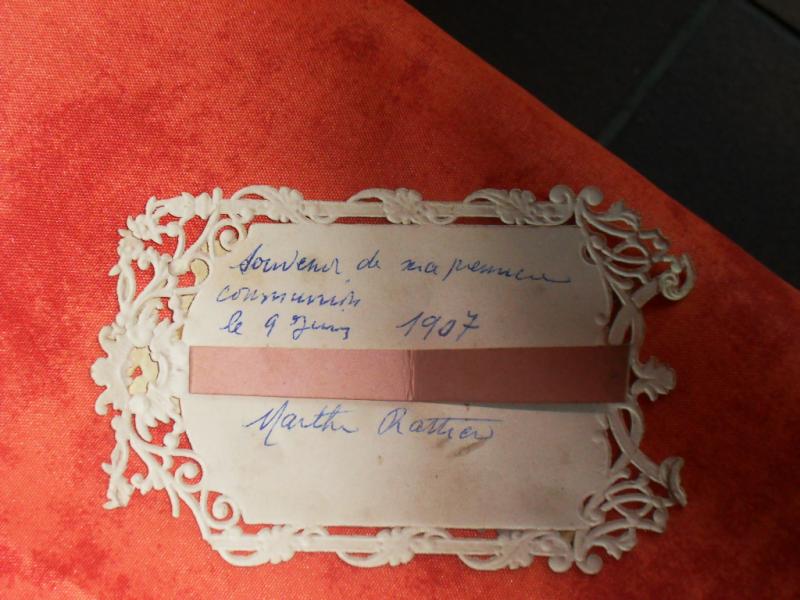 Souvenir de ma première
communion
le 9 Juin 1907
Marthe Rattier